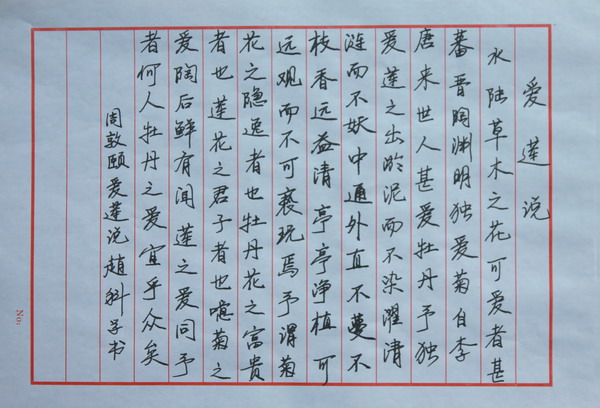 爱莲说
水陆草木之花可爱者甚
蕃晋陶渊明独爱菊自李
唐来世人甚爱牡丹予独
爱莲之出淤泥而不染濯清
涟而不妖中通外直不蔓不
枝香远益清亭亭净植可
远观而不可亵玩焉予谓菊
花之隐逸者也牡丹花之富贵
者也莲花之君子者也噫菊之
爱陶后鲜有闻莲之爱同予
者何人牡丹之爱宜乎众矣
周敦颐爱莲说趙科学书
No: